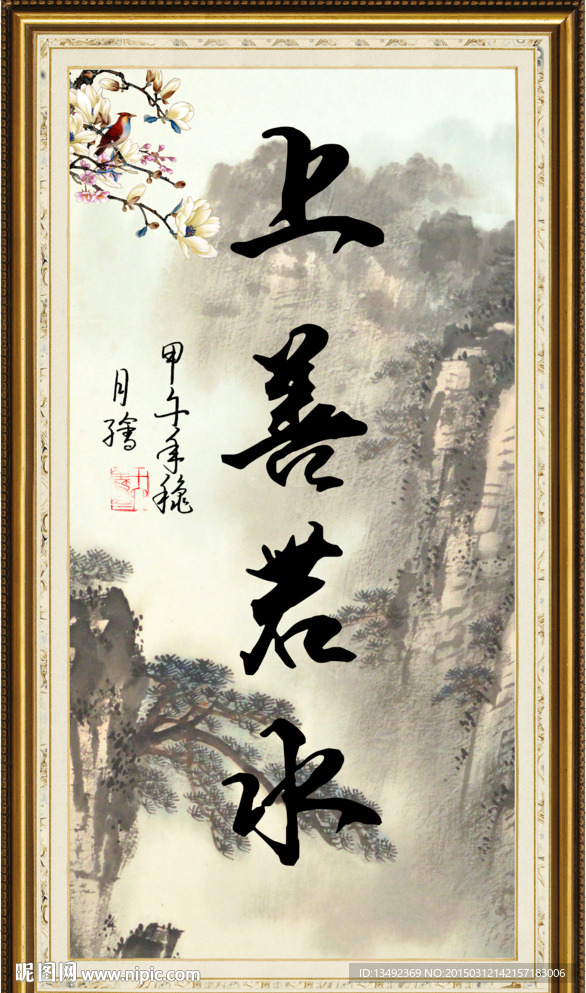 上善若水
甲午年秋
月绘
昵图网 www.nipic.com
ID:13492369 NO:20150312142157183006